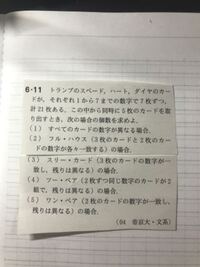 6・11 トランプのスペード，ハート，ダイヤのカー
ドが，それぞれ1から7までの数字で7枚ずつ，
計21枚ある。この中から同時に5枚のカードを取
り出すとき，次の場合の個数を求めよ。
(1) すべてのカードの数字が異なる場合．
(2) フル・ハウス（3枚のカードと2枚のカード
の数字が各々一致する）の場合．
(3) スリー・カード（3枚のカードの数字が一
致し，残りは異なる）の場合．
(4) ツー・ペア（2枚ずつ同じ数字のカードが2
組で，残りは異なる）の場合．
(5) ワン・ペア（2枚のカードの数字が一致し，
残りは異なる）の場合．
（94 帝京大・文系）